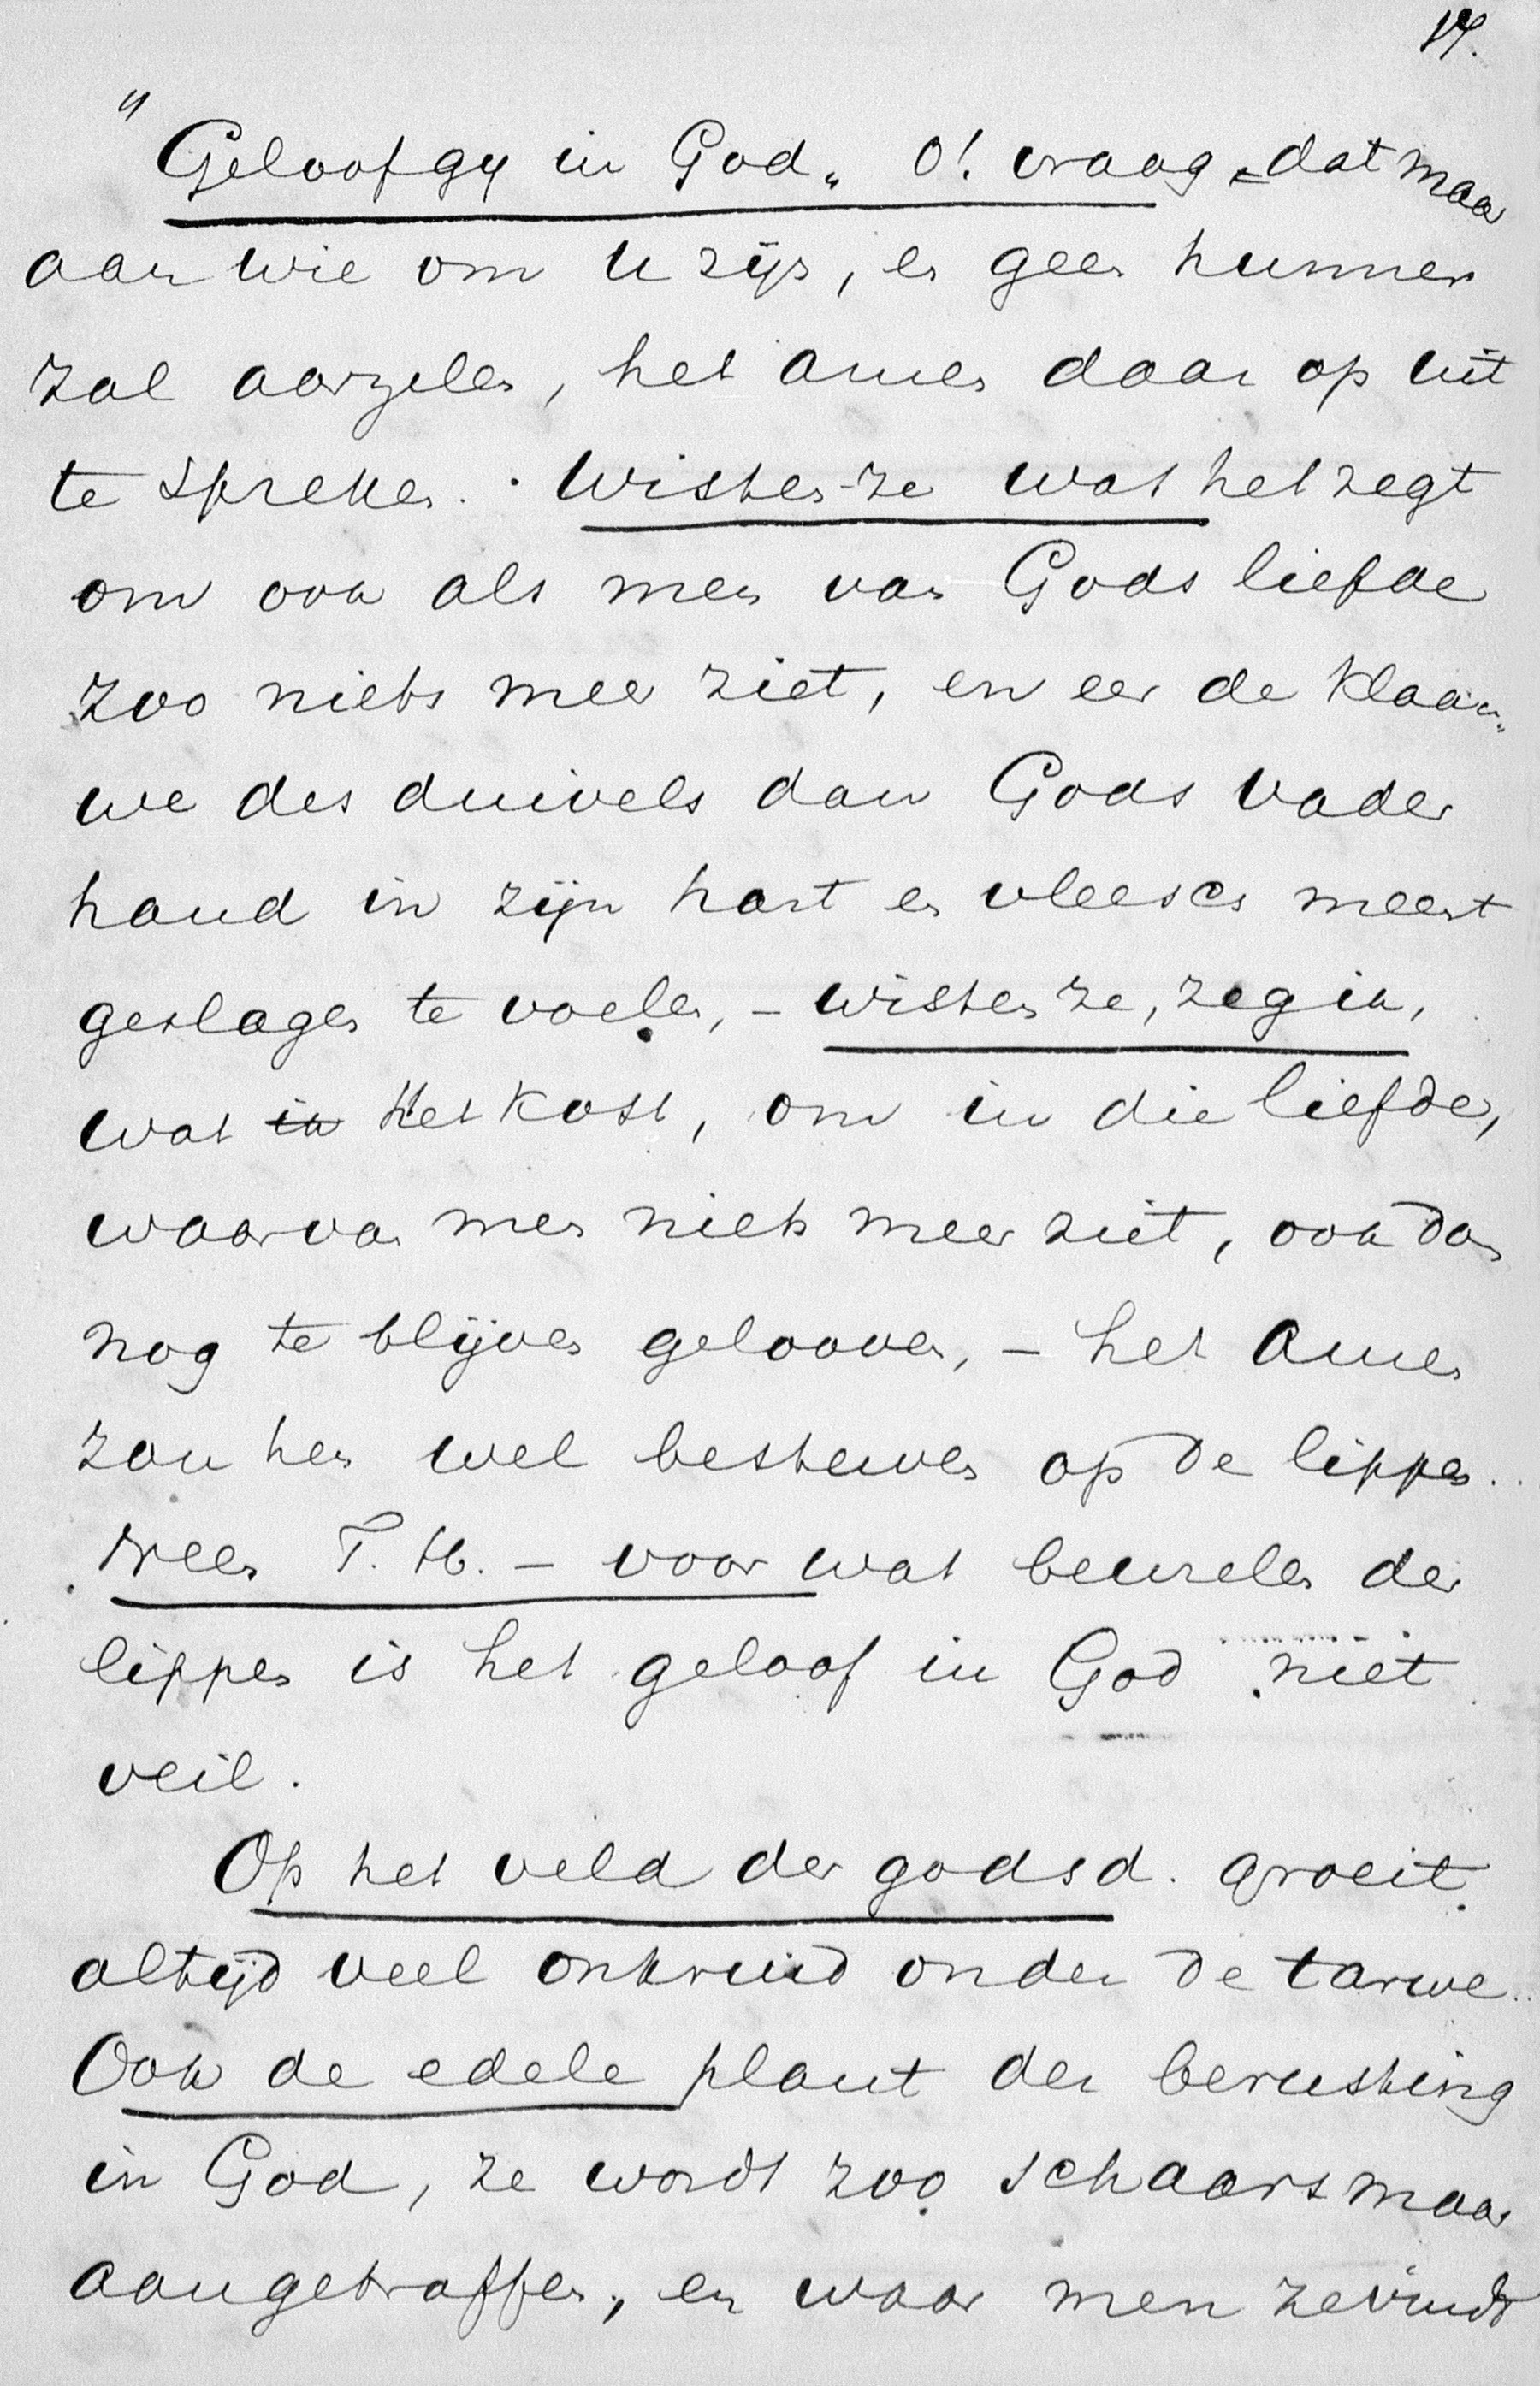 17.
"Geloof gy in God" O! vraag dat maar
aan wie om U zijn, en geen hunner
zal aarzelen, het amen daar op uit
te spreken. Wisten ze wat het zegt
om ook als men van Gods liefde
zoo niets meer ziet, en eer de klaau-
we des duivels dan Gods vader
hand in zijn hart en vleesch meent
geslagen te voelen, – wisten ze, zeg ik,
wat in het kost, om in die liefde,
waarvan men niets meer ziet, ook dan
nog te blijven gelooven, – het amen
zou hen wel besterven op de lippen.
Neen T. H. – voor wat beuzelen der
lippen is het geloof in God niet
veil.
Op het veld der godsd. groeit
altijd veel onkruid onder de tarwe.
Ook de edele plant der berusting
in God, ze wordt zoo schaars maar
aangetroffen, en waar men ze vindt